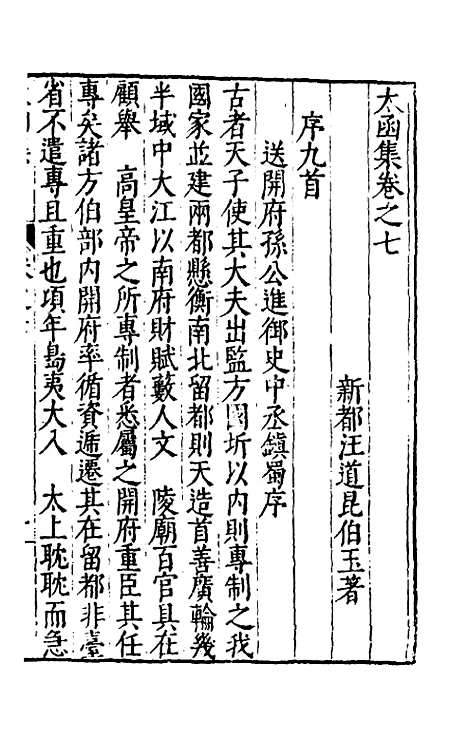 太函集卷之七
新都汪道昆伯玉著
序九首
送開府孫公進御史中丞鎮蜀序
古者天子使其大夫出監方國圻以內則專制之我
國家並建兩都懸衡南北留都則天造首善廣輪幾
半域中大江以南府財賦藪人文　陵廟百官具在
顧舉　高皇帝之所專制者悉屬之開府重臣其任
專矣諸方伯部內開府率循資遞遷其在留都非臺
省不遣專且重也項年島夷大入　太上耽耽而急